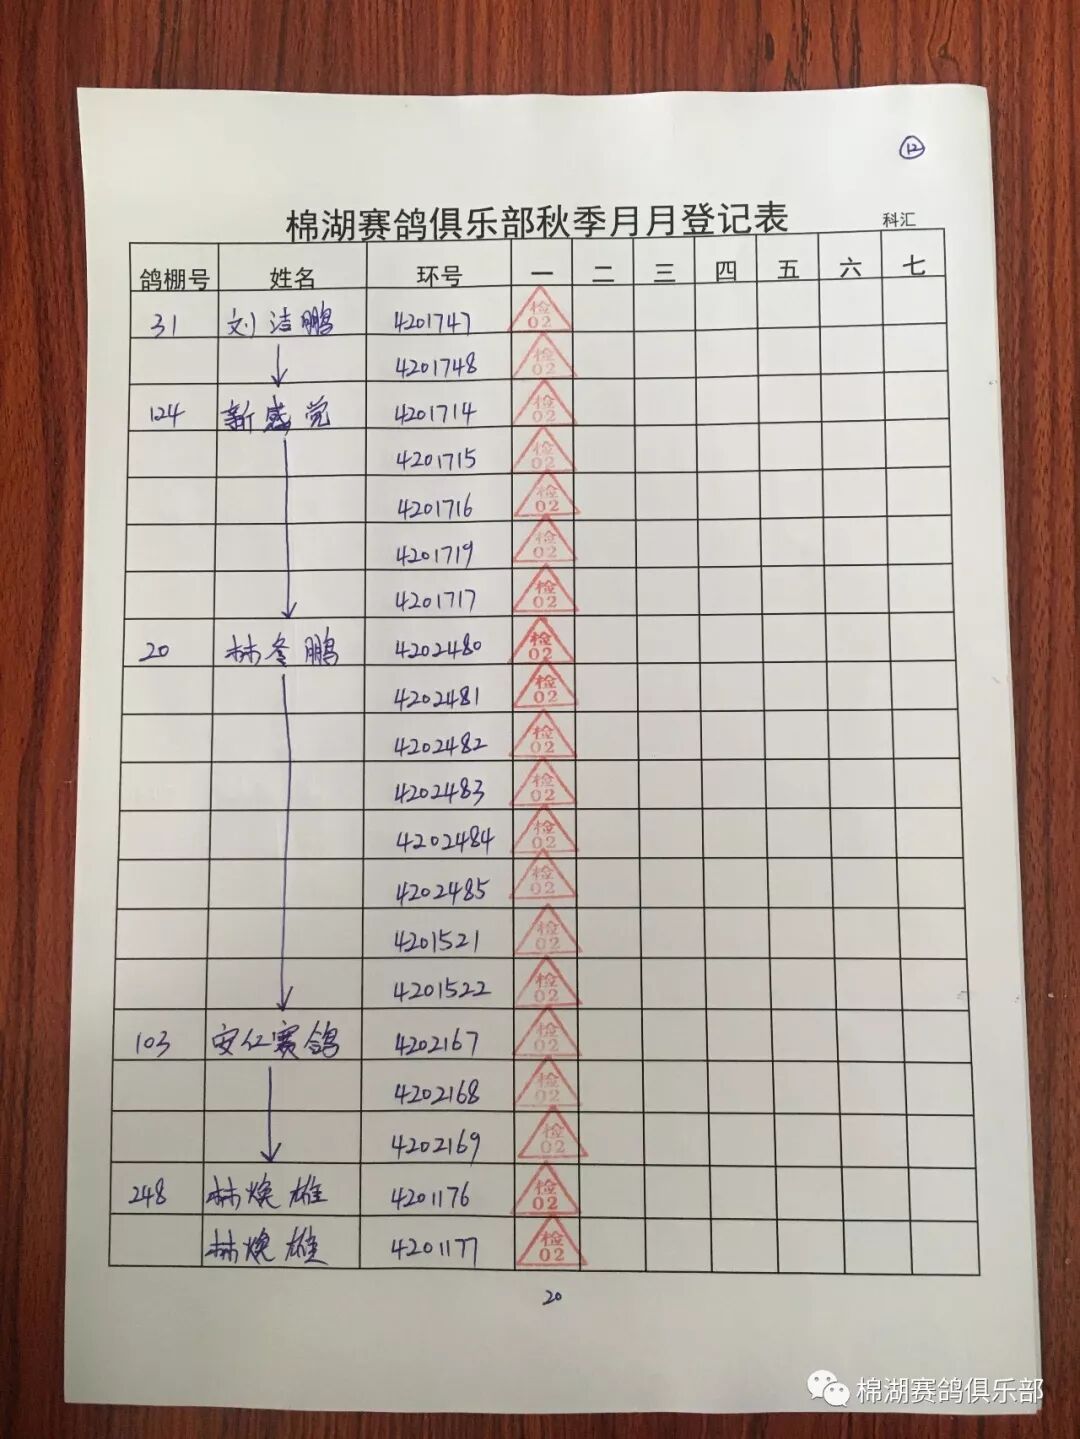 ⑫
棉湖赛鸽俱乐部秋季月月登记表 科汇
鸽棚号 姓名 环号 一 二 三 四 五 六 七
31 刘洁鹏 4201747 检02
4201748 检02
124 新感觉 4201714 检02
4201715 检02
4201716 检02
4201719 检02
4201717 检02
20 林冬鹏 4202480 检02
4202481 检02
4202482 检02
4202483 检02
4202484 检02
4202485 检02
4201521 检02
4201522 检02
103 安仁赛鸽 4202167 检02
4202168 检02
4202169 检02
248 林焕雄 4201176 检02
林焕雄 4201177 检02
20
棉湖赛鸽俱乐部